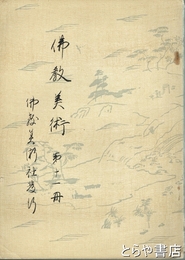 佛教美術 第十一冊
佛教美術社發行
とらや書店